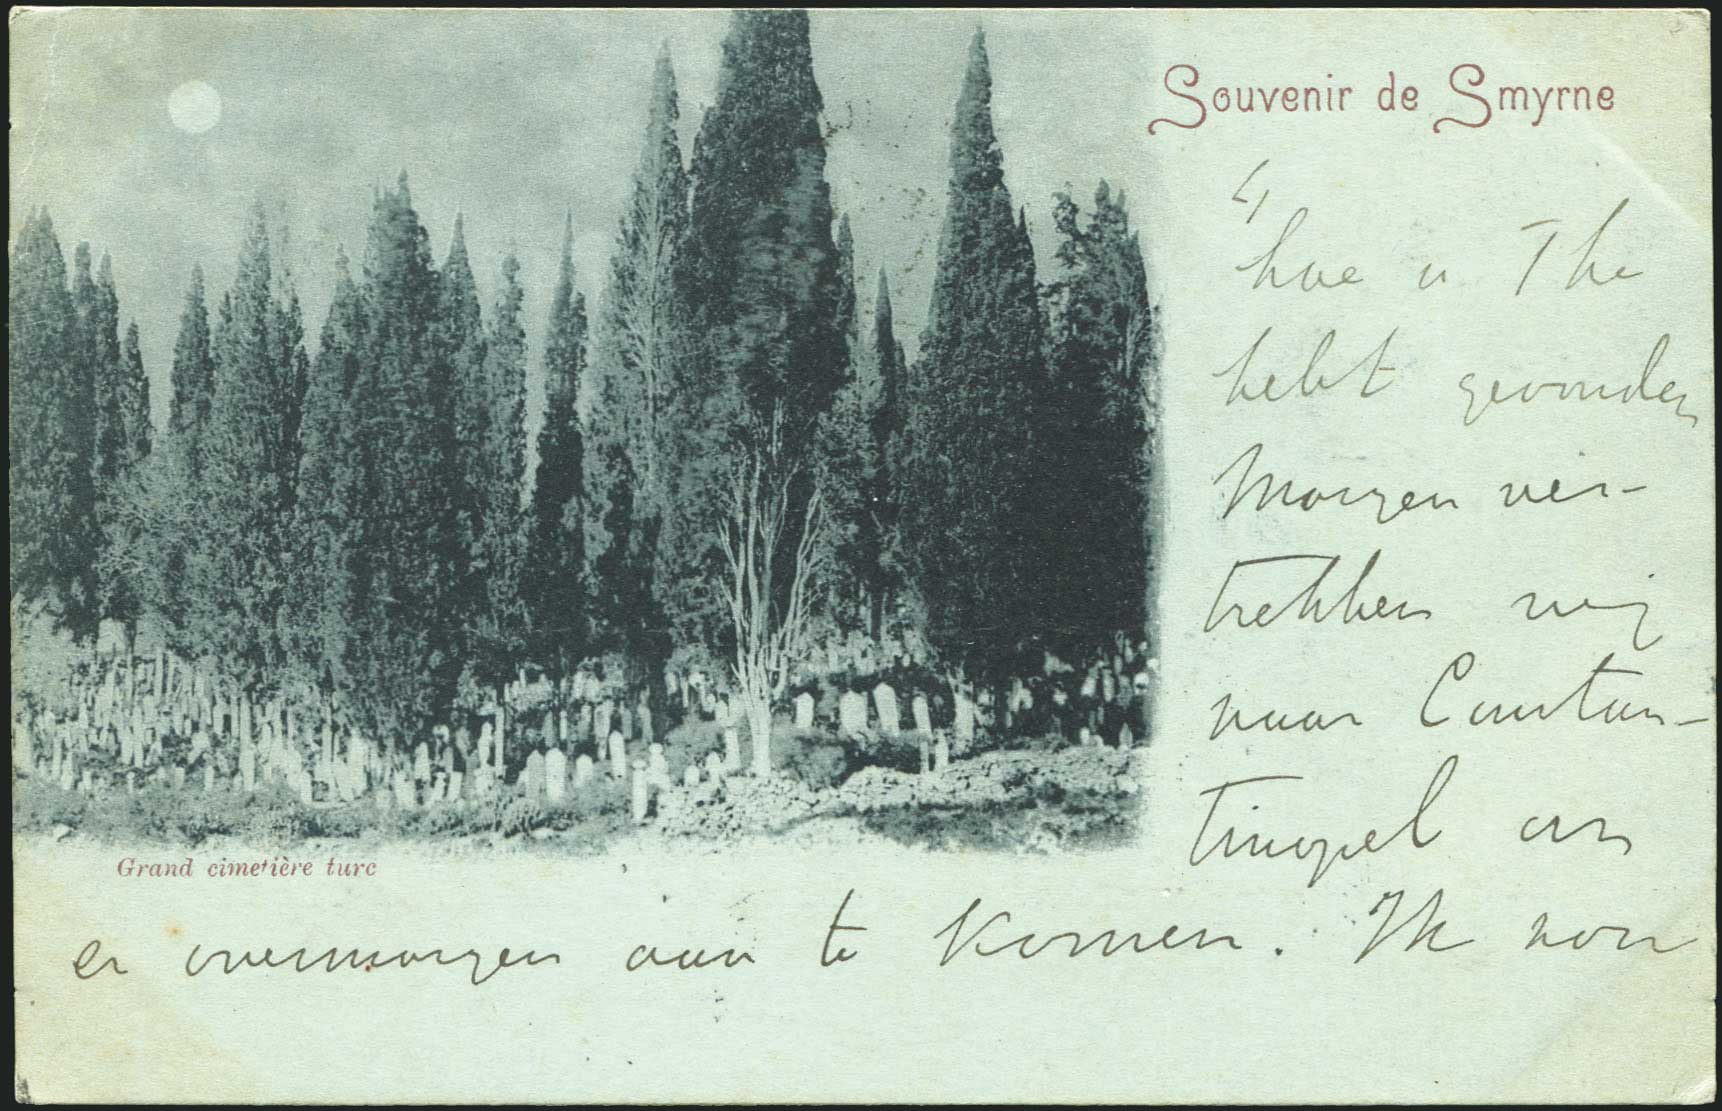 Souvenir de Smyrne
4
hoe u The
hebt gevonden
Morgen ver-
trekken wij
naar Constan-
tinopel om
er overmorgen aan te komen. Ik
Grand cimetière turc